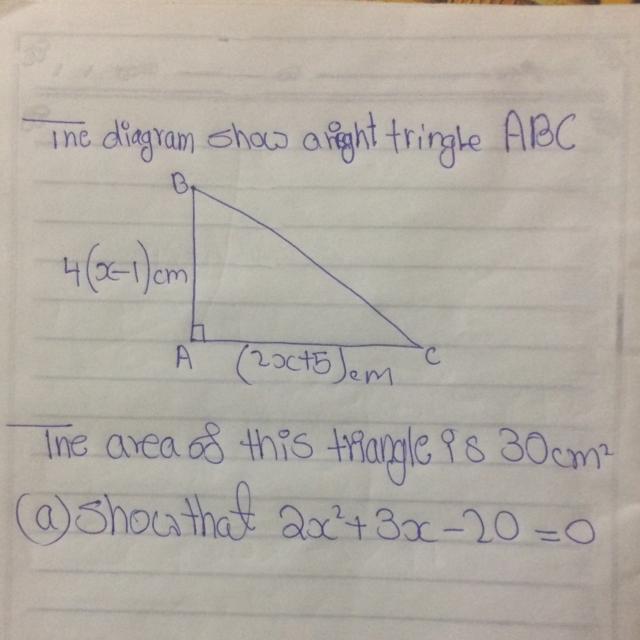 The diagram show a right tringle ABC
B
4(x-1)cm
A
(2x+5)cm
C
The area of this triangle is 30cm²
(a) Show that 2x²+3x-20=0